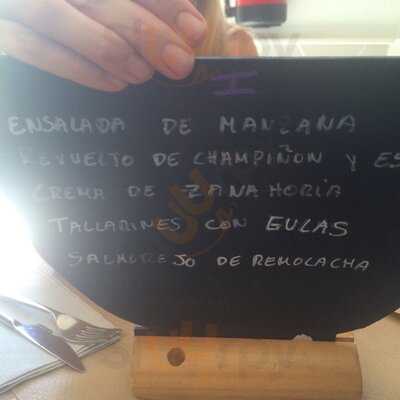 I
ENSALADA DE MANZANA
REVUELTO DE CHAMPIÑON Y ES
CREMA DE ZANAHORIA
TALLARINES CON GULAS
SALMOREJO DE REMOLACHA